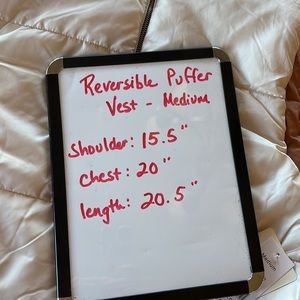 Reversible Puffer
Vest - Medium
Shoulder: 15.5"
Chest: 20"
length: 20.5"
Medium